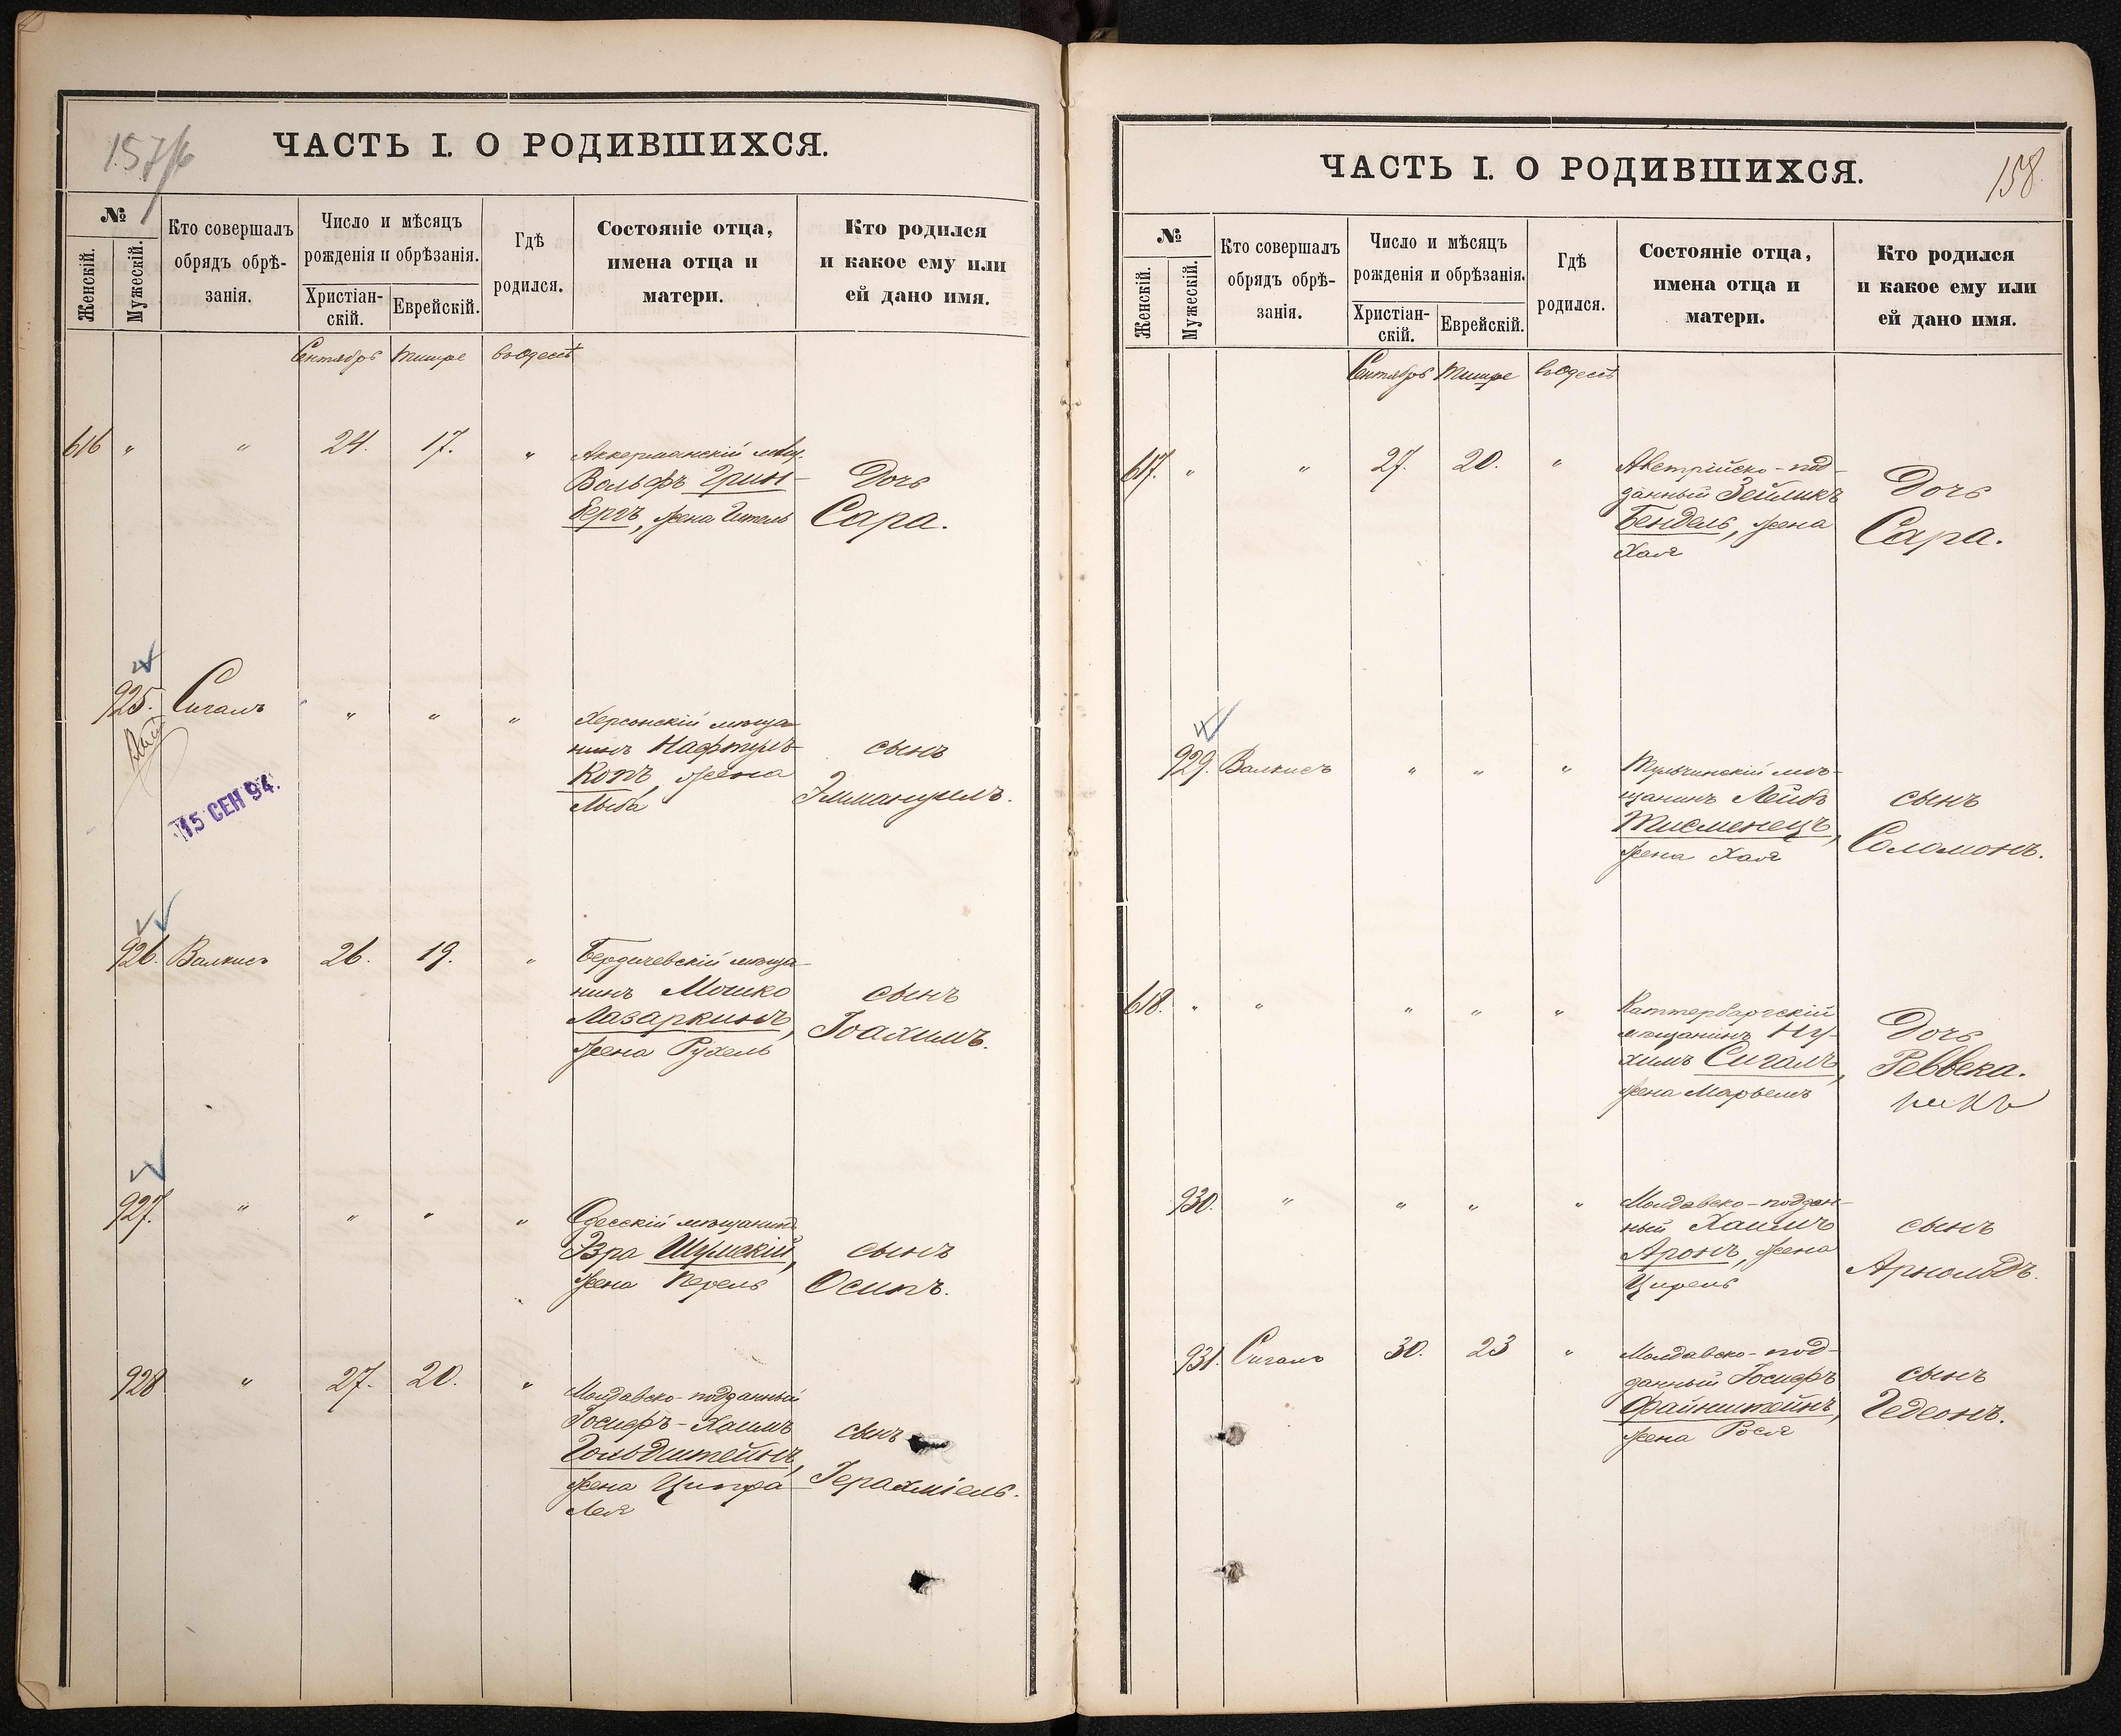 157
ЧАСТЬ I. О РОДИВШИХСЯ.
№
Женскій.
Мужескій.
Кто совершалъ
обрядъ обрѣ-
занія.
Число и мѣсяцъ
рожденія и обрѣзанія.
Христіан-
скій.
Еврейскій.
Гдѣ
родился.
Состояніе отца,
имена отца и
матери.
Кто родился
и какое ему или
ей дано имя.
Сентябрь Тишре въ Одессѣ
616 " " 24. 17. "
Аккерманскій мѣщ.
Вольфъ Грин-
бергъ, жена Ительь
Дочь
Сара.
925. Сигалъ " " "
Херсонскій мѣща-
нинъ Нафтулъ
Копъ, жена
Лыба
сынъ
Эммануилъ.
15 СЕН 94.
926. Валкисъ 26. 19. "
Бердичевскій мѣща-
нинъ Мошко
Лазаркинъ,
жена Рухель
сынъ
Іоахимъ.
927. " " " "
Одесскій мѣщанинъ
Эзра Шумскій,
жена Перель
сынъ
Осипъ.
928 " 27. 20. "
Молдавско-подданный
Іосифъ-Хаимъ
Гольдштейнъ,
жена Ципра
Лея
сынъ
Іерахміель.
ЧАСТЬ I. О РОДИВШИХСЯ.
158.
№
Женскій.
Мужескій.
Кто совершалъ
обрядъ обрѣ-
занія.
Число и мѣсяцъ
рожденія и обрѣзанія.
Христіан-
скій.
Еврейскій.
Гдѣ
родился.
Состояніе отца,
имена отца и
матери.
Кто родился
и какое ему или
ей дано имя.
Сентябрь Тишре въ Одессѣ
617. " " 27. 20. "
Австрійско-под-
данный Зейликъ
Бендель, жена
Хая
Дочь
Сара.
929. Валкисъ " " "
Тульчинскій мѣ-
щанинъ Лейбъ
Тисменецъ,
жена Хая
сынъ
Соломонъ.
618. " " " " "
мѣщанинъ Ну-
химъ Сигалъ,
жена Марьемъ
Дочь
Реввека.
930. " " " "
Молдавско-поддан-
ный Хаимъ
Аронъ, жена
Цирель
сынъ
Арнольдъ.
931. Сигалъ 30. 23 "
Молдавско-под-
данный Іосифъ
Файнштейнъ,
жена Рося
сынъ
Гедеонъ.